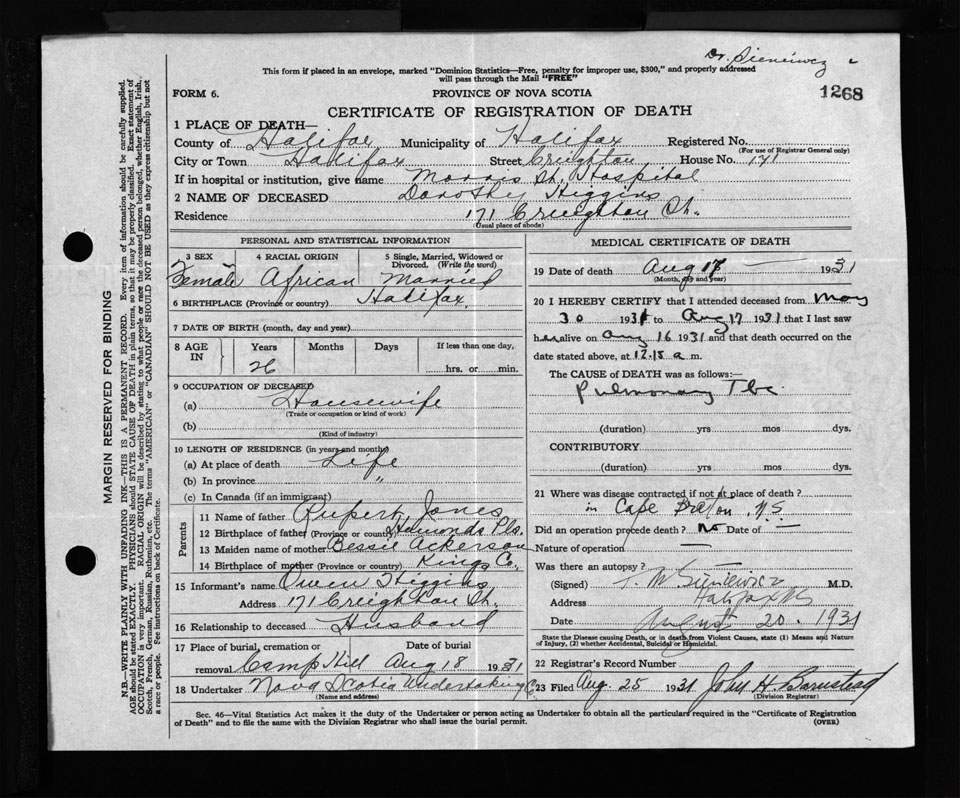 Dr. Sieniewicz
This form if placed in an envelope, marked "Dominion Statistics—Free, penalty for improper use, $300," and properly addressed
will pass through the Mail "FREE"
FORM 6.
PROVINCE OF NOVA SCOTIA
1268
CERTIFICATE OF REGISTRATION OF DEATH
1 PLACE OF DEATH—
County of Halifax Municipality of Halifax Registered No.
(For use of Registrar General only)
City or Town Halifax Street Creighton House No. 171
If in hospital or institution, give name Morris St. Hospital
2 NAME OF DECEASED Dorothy Higgins
Residence 171 Creighton St.
(Usual place of abode)
PERSONAL AND STATISTICAL INFORMATION
3 SEX 4 RACIAL ORIGIN 5 Single, Married, Widowed or Divorced. (Write the word)
Female African Married
6 BIRTHPLACE (Province or country) Halifax.
7 DATE OF BIRTH (month, day and year)
8 AGE IN Years Months Days If less than one day,
26 hrs. or min.
9 OCCUPATION OF DECEASED
(a) Housewife
(Trade or occupation or kind of work)
(b)
(Kind of industry)
10 LENGTH OF RESIDENCE (in years and months)
(a) At place of death Life
(b) In province "
(c) In Canada (if an immigrant)
Parents
11 Name of father Rupert Jones
12 Birthplace of father (Province or country) Hamonds Pls.
13 Maiden name of mother Bessie Ackerson
14 Birthplace of mother (Province or country) Kings Co.
15 Informant's name Owen Higgins
Address 171 Creighton St.
16 Relationship to deceased Husband
17 Place of burial, cremation or removal Date of burial
Camp Hill Aug 18 1931
18 Undertaker Nova Scotia Undertaking Co.
(Name and address)
MEDICAL CERTIFICATE OF DEATH
19 Date of death Aug 17 — 1931
(Month, day and year)
20 I HEREBY CERTIFY that I attended deceased from May
30 1931 to Aug 17 1931 that I last saw
her alive on Aug 16 1931 and that death occurred on the
date stated above, at 12.15 a m.
The CAUSE of DEATH was as follows:—
Pulmonary Tbc
(duration) yrs mos dys.
CONTRIBUTORY
(duration) yrs mos dys.
21 Where was disease contracted if not at place of death?
in Cape Breton N.S.
Did an operation precede death? No Date of —
Nature of operation —
Was there an autopsy? —
(Signed) T. M Sieniewicz M.D.
Address Halifax NS
Date August 20. 1931
State the Disease causing Death, or in death from Violent Causes, state (1) Means and Nature
of Injury, (2) whether Accidental, Suicidal or Homicidal.
22 Registrar's Record Number
23 Filed Aug. 25 1931 John H Barnstead
(Division Registrar)
Sec. 46—Vital Statistics Act makes it the duty of the Undertaker or person acting as Undertaker to obtain all the particulars required in the "Certificate of Registration
of Death" and to file the same with the Division Registrar who shall issue the burial permit.
(OVER)
MARGIN RESERVED FOR BINDING
N.B.—WRITE PLAINLY WITH UNFADING INK—THIS IS A PERMANENT RECORD. Every item of information should be carefully supplied.
AGE should be stated EXACTLY. PHYSICIANS should STATE CAUSE OF DEATH in plain terms, so that it may be properly classified. Exact statement of
OCCUPATION is very important. RACIAL ORIGIN will be described by stating to what people or race the deceased person belonged, whether English, Irish,
Scotch, French, German, Russian, Ruthenian, etc. The terms "AMERICAN" or "CANADIAN" SHOULD NOT BE USED as they express citizenship but not
a race or people. See instructions on back of Certificate.